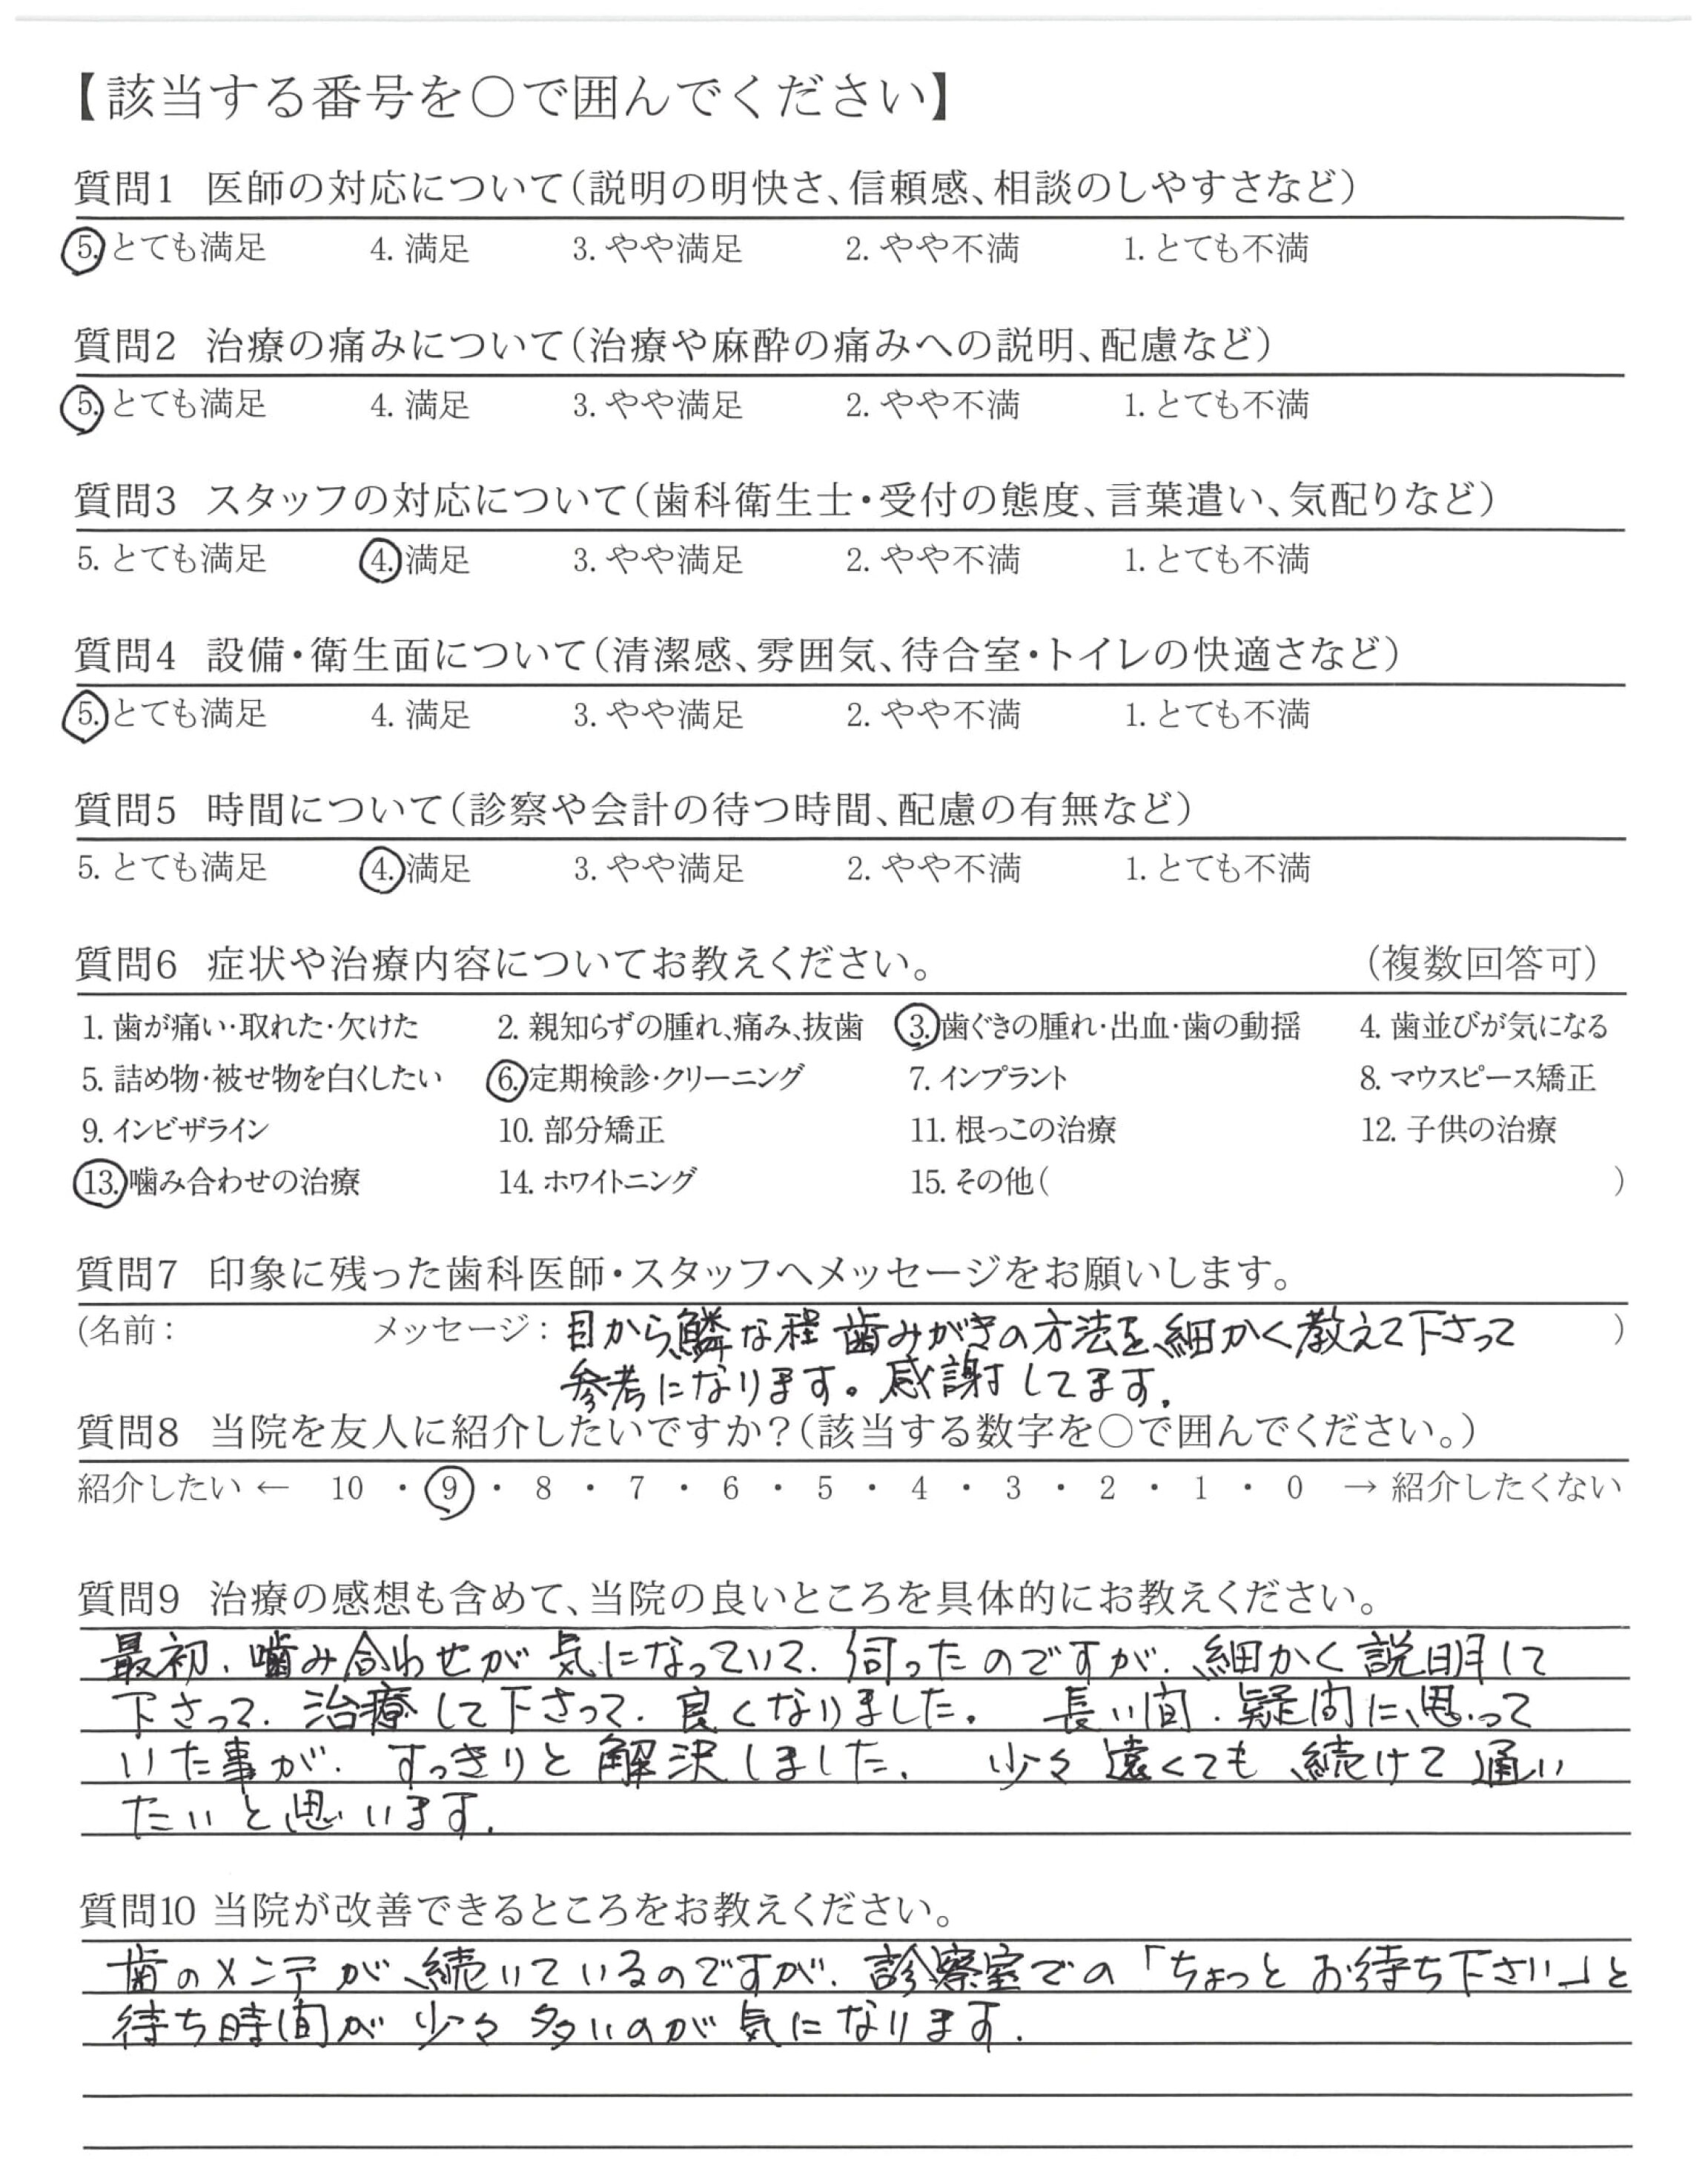 【該当する番号を○で囲んでください】
質問1 医師の対応について(説明の明快さ、信頼感、相談のしやすさなど)
5. とても満足 4. 満足 3. やや満足 2. やや不満 1. とても不満
質問2 治療の痛みについて(治療や麻酔の痛みへの説明、配慮など)
5. とても満足 4. 満足 3. やや満足 2. やや不満 1. とても不満
質問3 スタッフの対応について(歯科衛生士・受付の態度、言葉遣い、気配りなど)
5. とても満足 4. 満足 3. やや満足 2. やや不満 1. とても不満
質問4 設備・衛生面について(清潔感、雰囲気、待合室・トイレの快適さなど)
5. とても満足 4. 満足 3. やや満足 2. やや不満 1. とても不満
質問5 時間について(診察や会計の待つ時間、配慮の有無など)
5. とても満足 4. 満足 3. やや満足 2. やや不満 1. とても不満
質問6 症状や治療内容についてお教えください。 (複数回答可)
1. 歯が痛い・取れた・欠けた 2. 親知らずの腫れ、痛み、抜歯 3. 歯ぐきの腫れ・出血・歯の動揺 4. 歯並びが気になる
5. 詰め物・被せ物を白くしたい 6. 定期検診・クリーニング 7. インプラント 8. マウスピース矯正
9. インビザライン 10. 部分矯正 11. 根っこの治療 12. 子供の治療
13. 噛み合わせの治療 14. ホワイトニング 15. その他( )
質問7 印象に残った歯科医師・スタッフへメッセージをお願いします。
(名前: メッセージ: 目から鱗な程 歯みがきの方法を細かく教えて下さって )
参考になります。感謝してます.
質問8 当院を友人に紹介したいですか?(該当する数字を○で囲んでください。)
紹介したい ← 10 ・ 9 ・ 8 ・ 7 ・ 6 ・ 5 ・ 4 ・ 3 ・ 2 ・ 1 ・ 0 → 紹介したくない
質問9 治療の感想も含めて、当院の良いところを具体的にお教えください。
最初、噛み合わせが気になっていて、伺ったのですが、細かく説明して
下さって、治療して下さって、良くなりました。 長い間、疑問に思って
いた事が、すっきりと解決しました. 少々遠くても続けて通い
たいと思います.
質問10 当院が改善できるところをお教えください。
歯のメンテが続いているのですが、診察室での「ちょっとお待ち下さい」と
待ち時間が少々多いのが気になります.